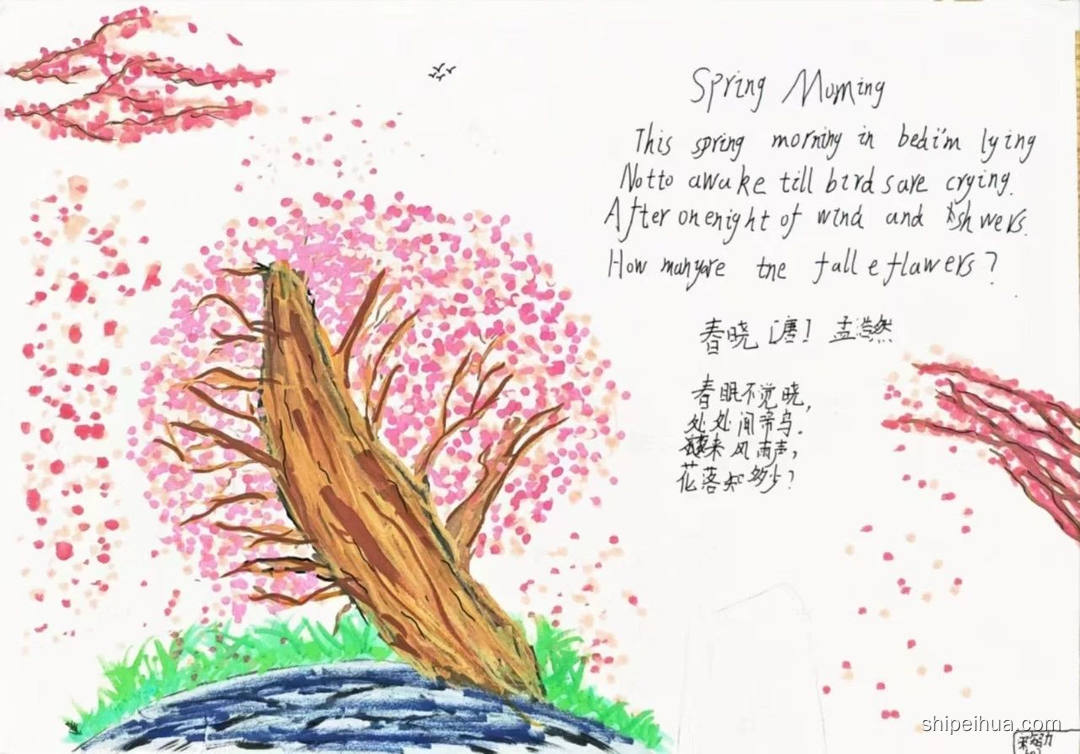 Spring Morning
This spring morning in bed i'm lying
Notto awake till birds are crying.
After onenight of wind and shwers.
How manyare tne falle flawers?
春晓 [唐] 孟浩然
春眠不觉晓,
处处闻啼鸟.
来风雨声,
花落知多少?
shipeihua.com